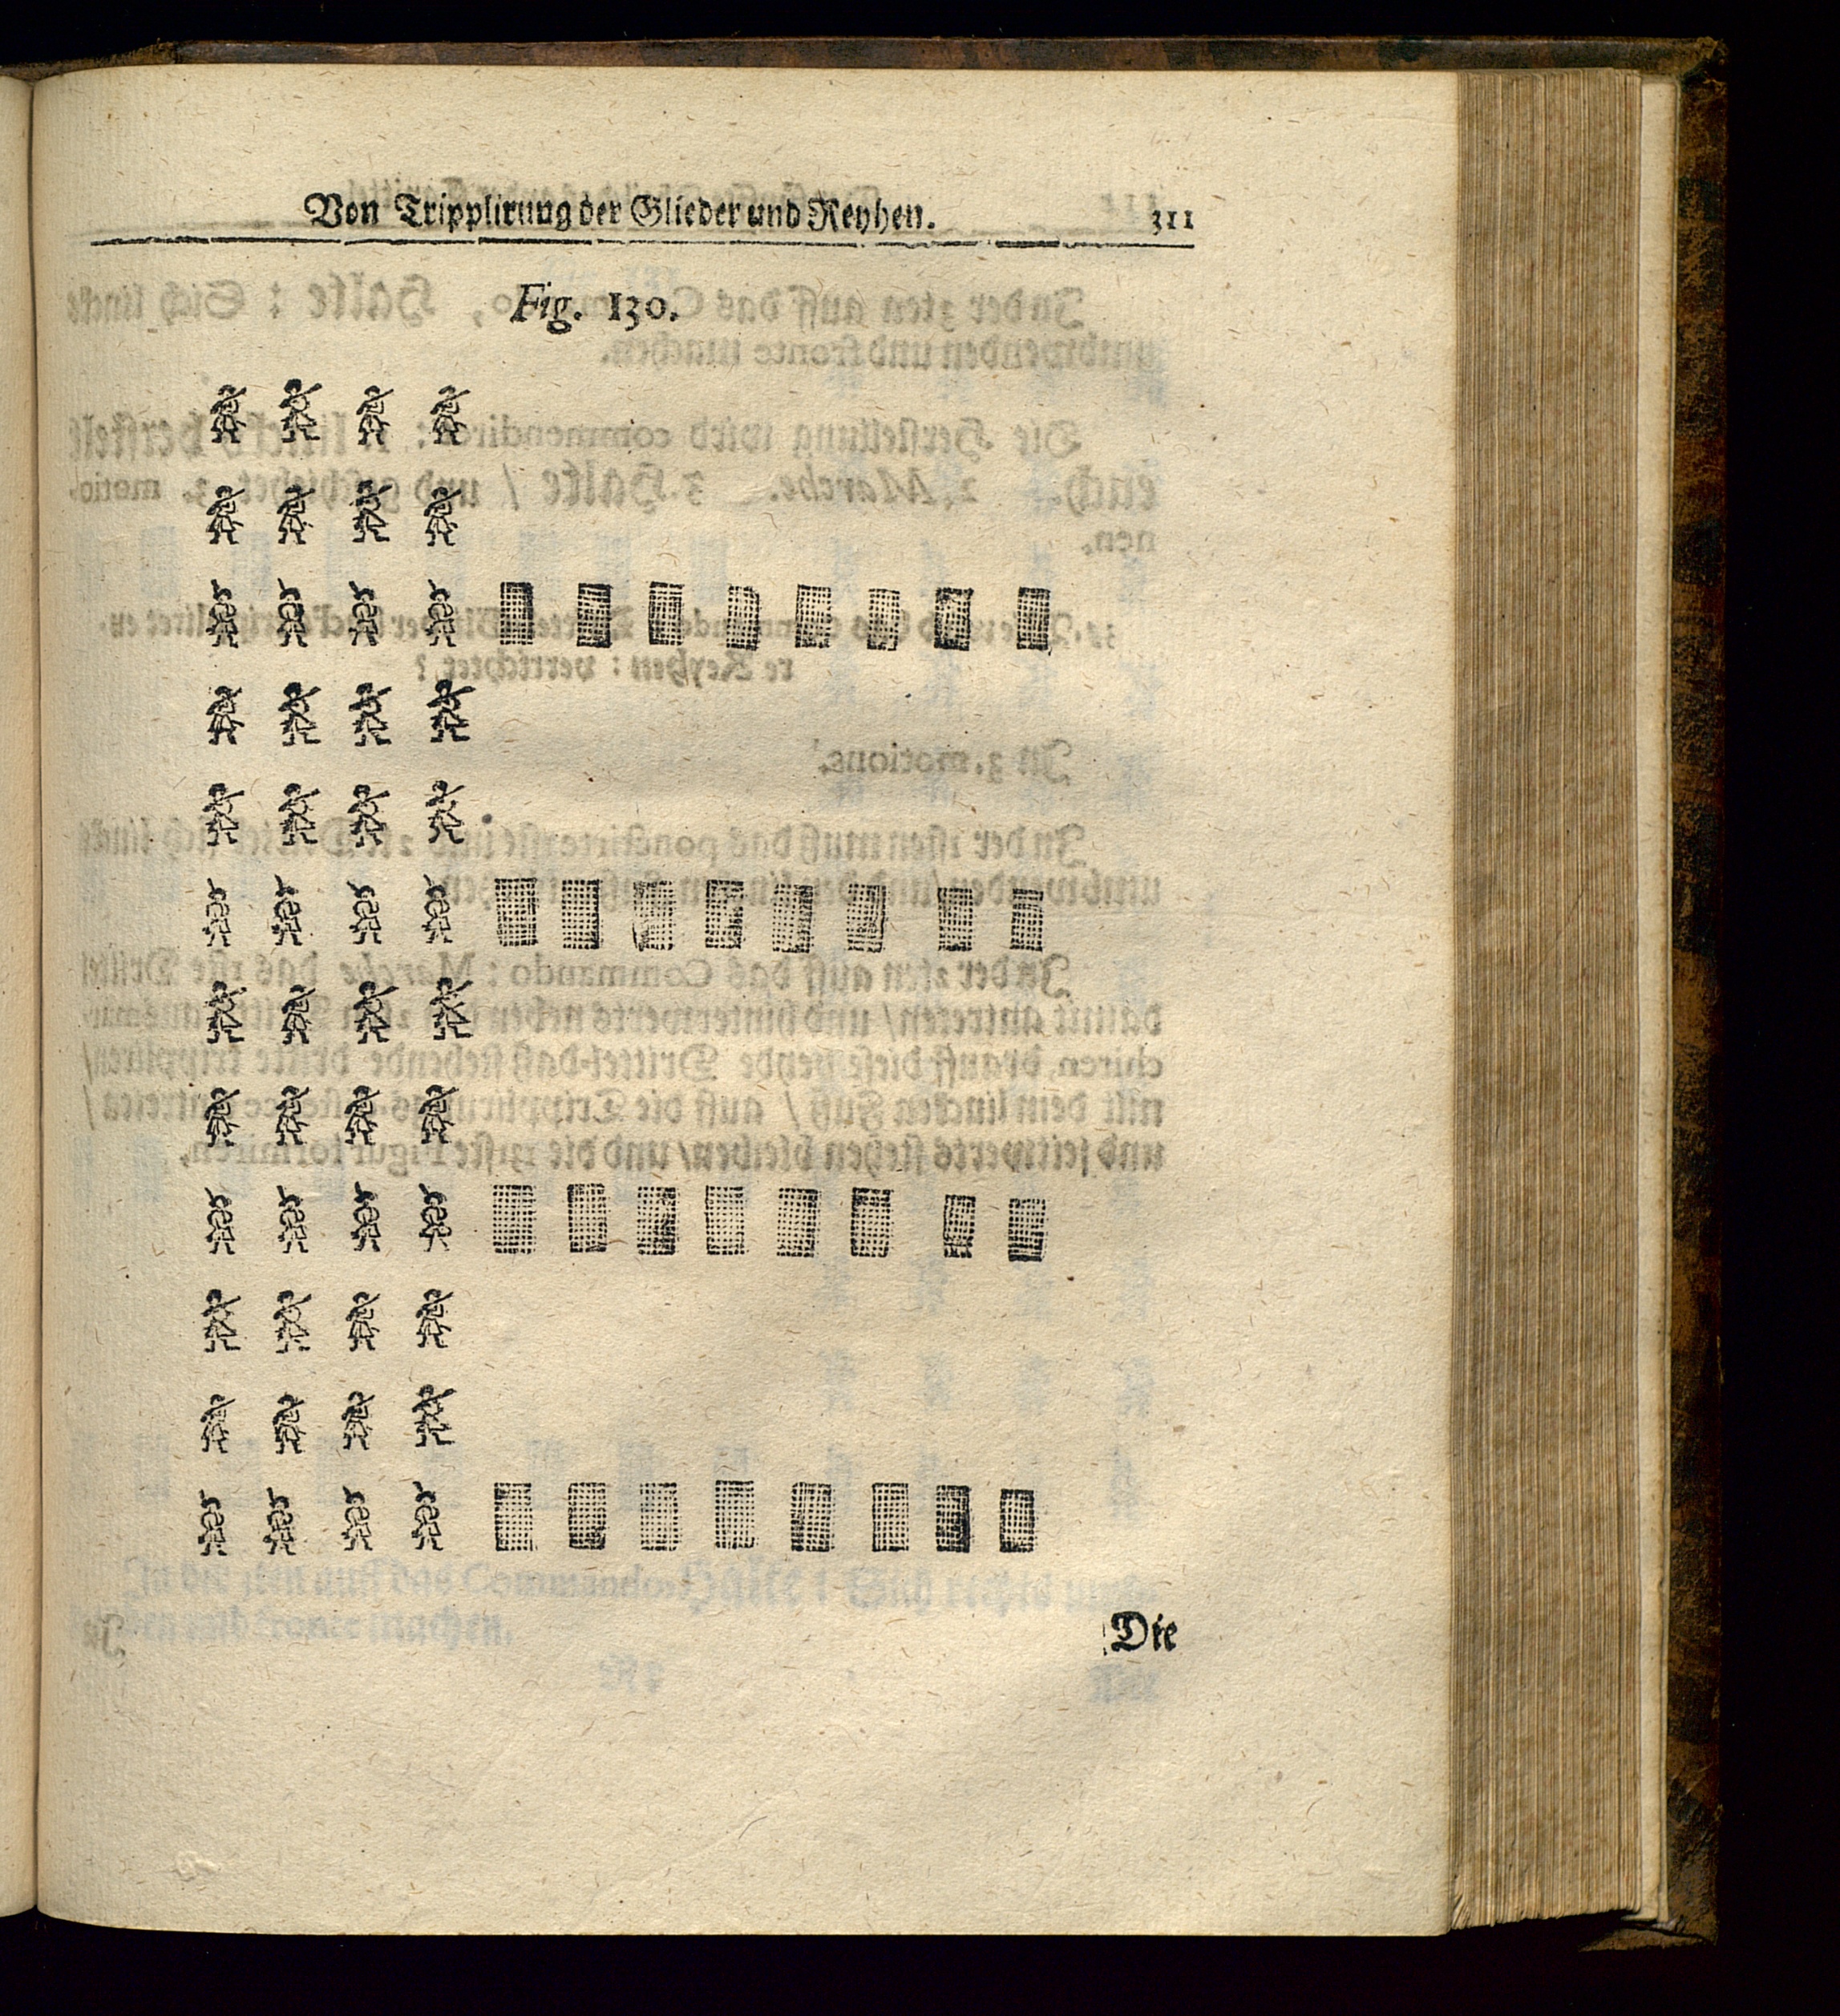 Von Tripplirung der Glieder und Reyhen. 311
Fig. 130.
Die